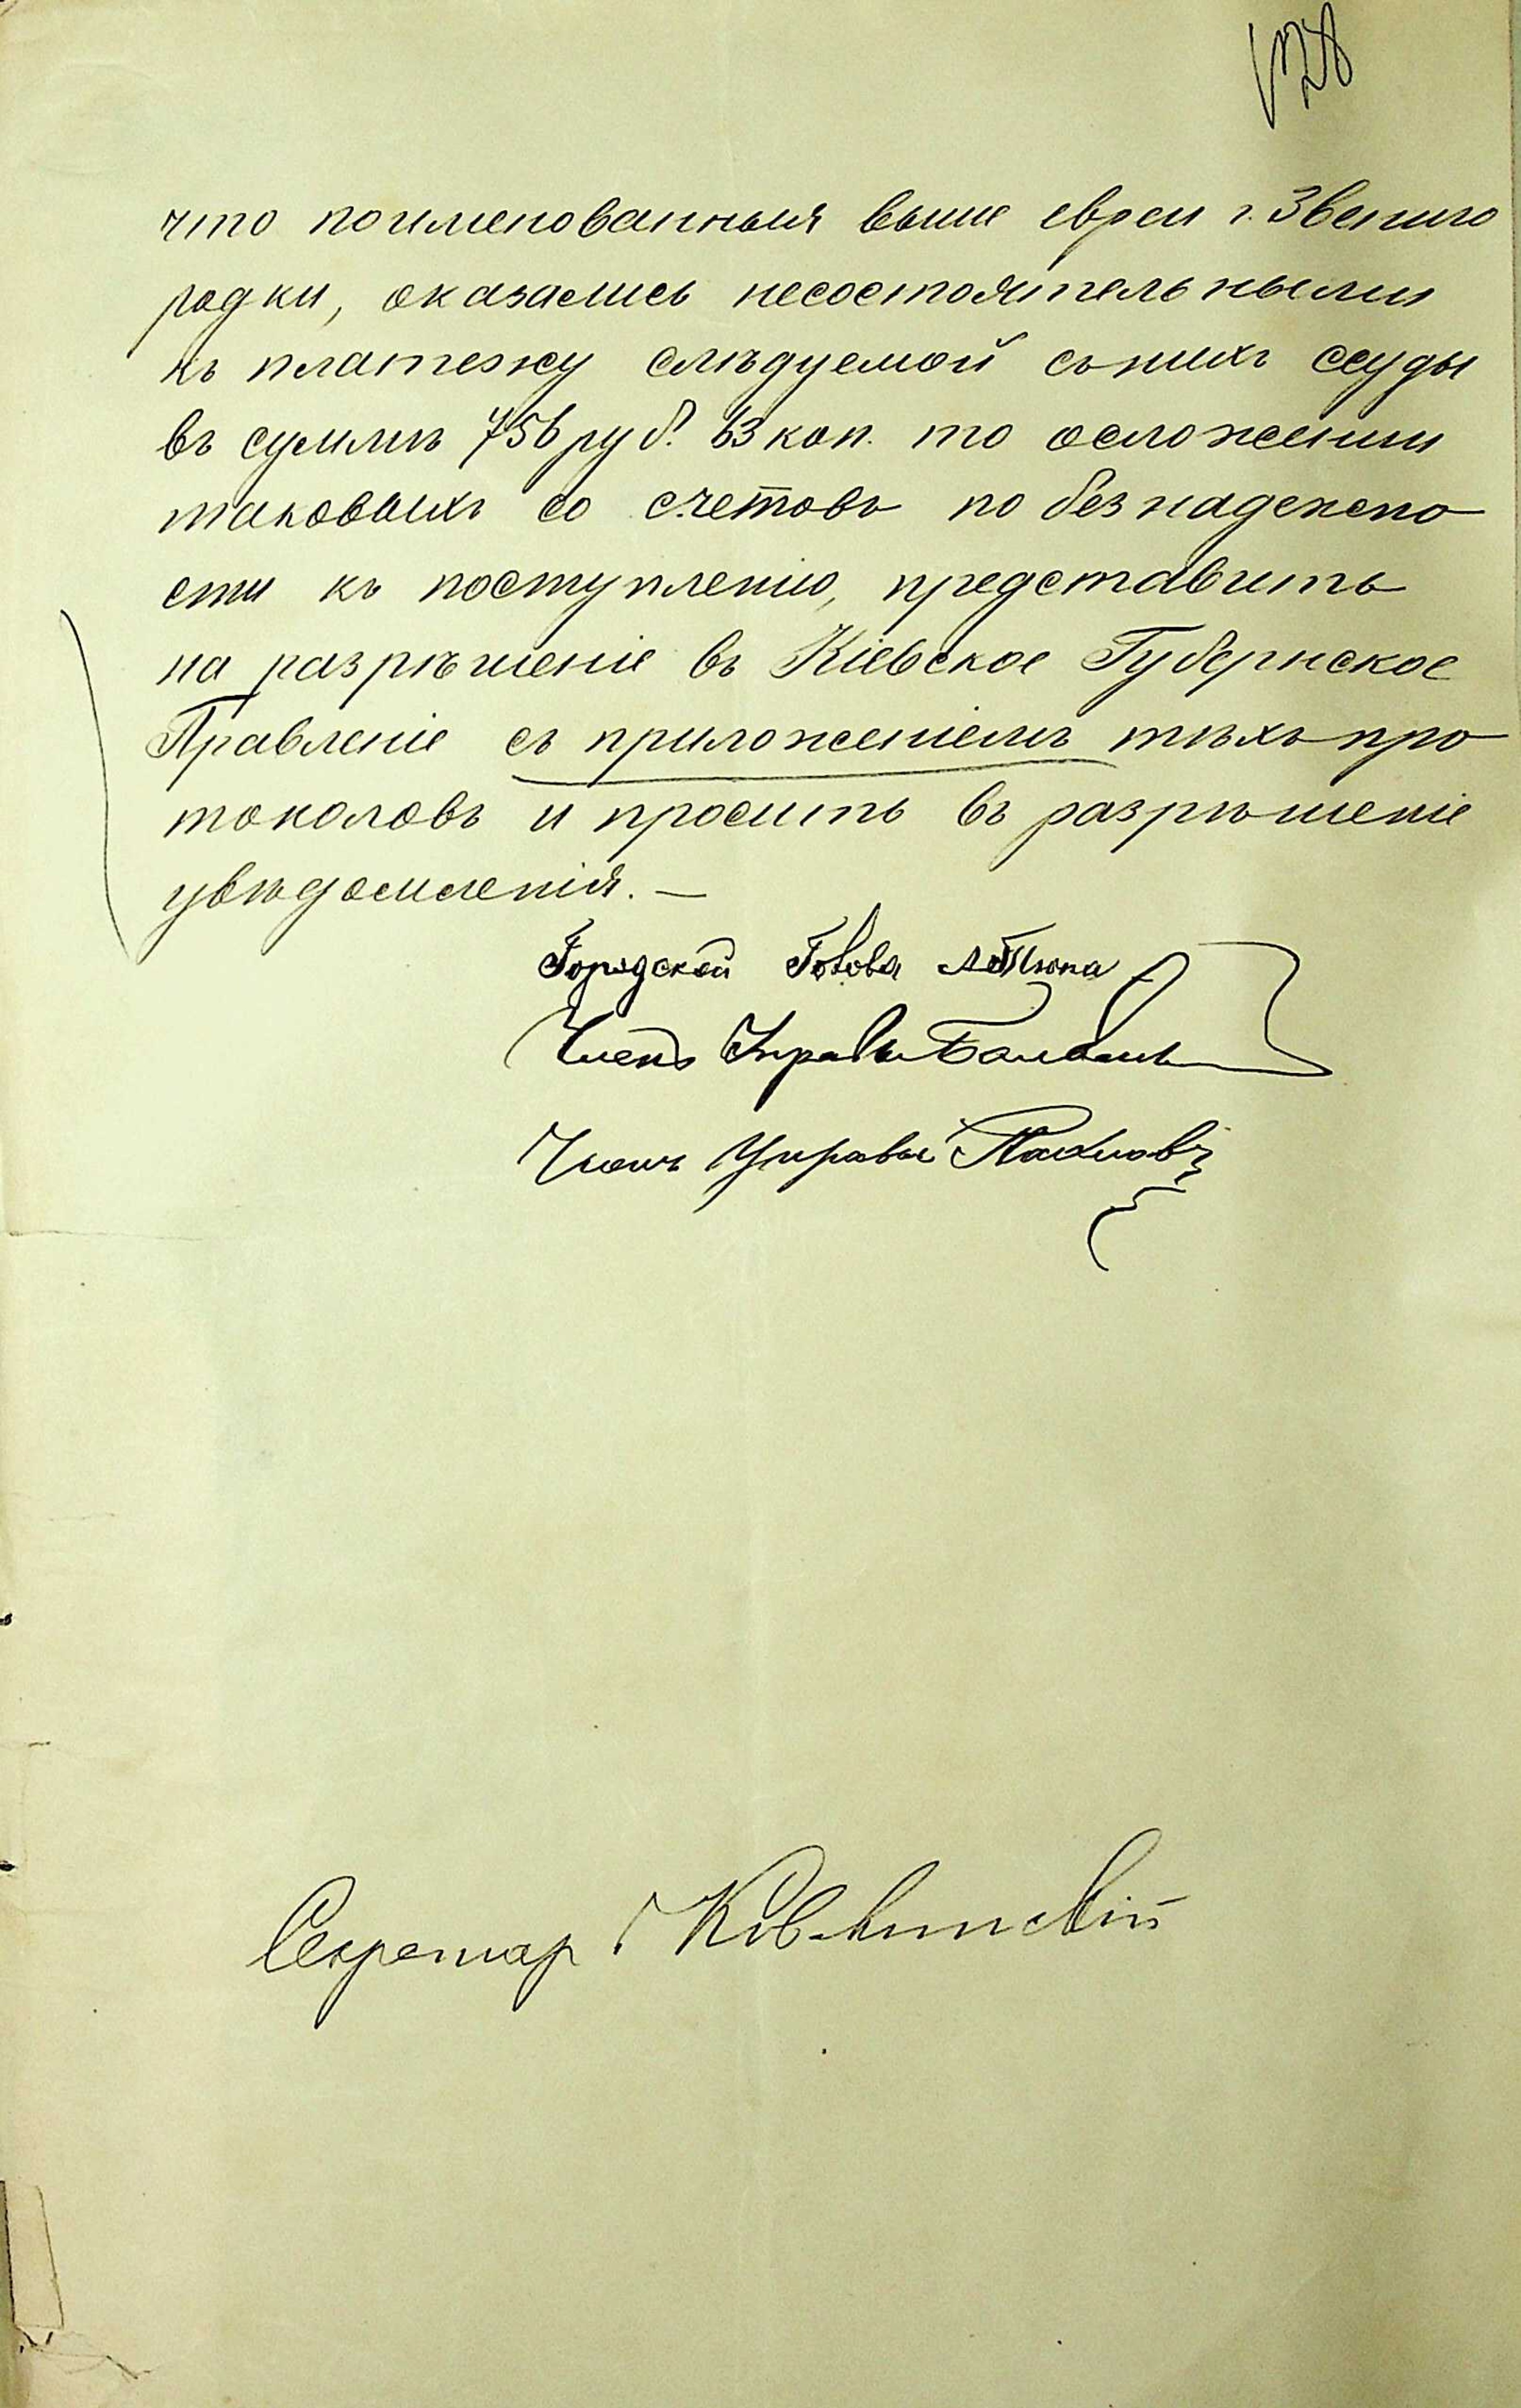 что поименованныя выше евреи г. Звениго
родки, оказались несостоятельными
къ платежу слѣдуемой съ нихъ ссуды
въ суммѣ 756 руб. 63 коп. то о сложении
таковыхъ со счетовъ по безнадежно
сти къ поступленію, представить
на разрѣшеніе въ Кіевское Губернское
Правленіе съ приложеніемъ тѣхъ про
токоловъ и просить въ разрѣшеніе
увѣдомленія. —
Городской Голова
Членъ Управы
Членъ Управы
Секретар